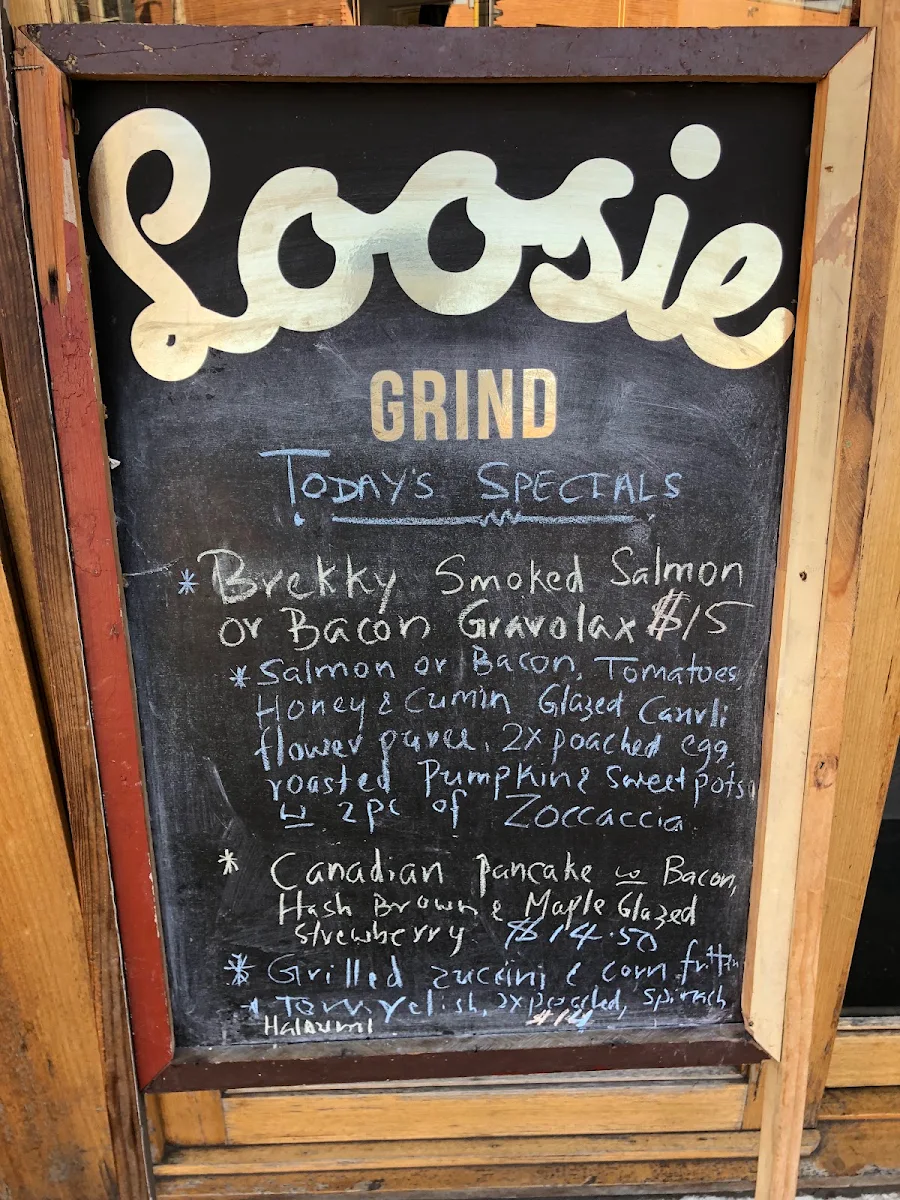 Loosie
GRIND
TODAY'S SPECIALS
* Brekky Smoked Salmon
or Bacon Gravolax $15
* Salmon or Bacon, Tomatoes,
Honey & Cumin Glazed Cauli
flower puree, 2x poached egg,
roasted Pumpkin & sweet pots
w 2pc of Zoccaccia
* Canadian pancake w Bacon,
Hash Brown & Maple Glazed
strewberry $14.50
* Grilled zuccini & corn
relish, 2x poached, spinach
Haloumi